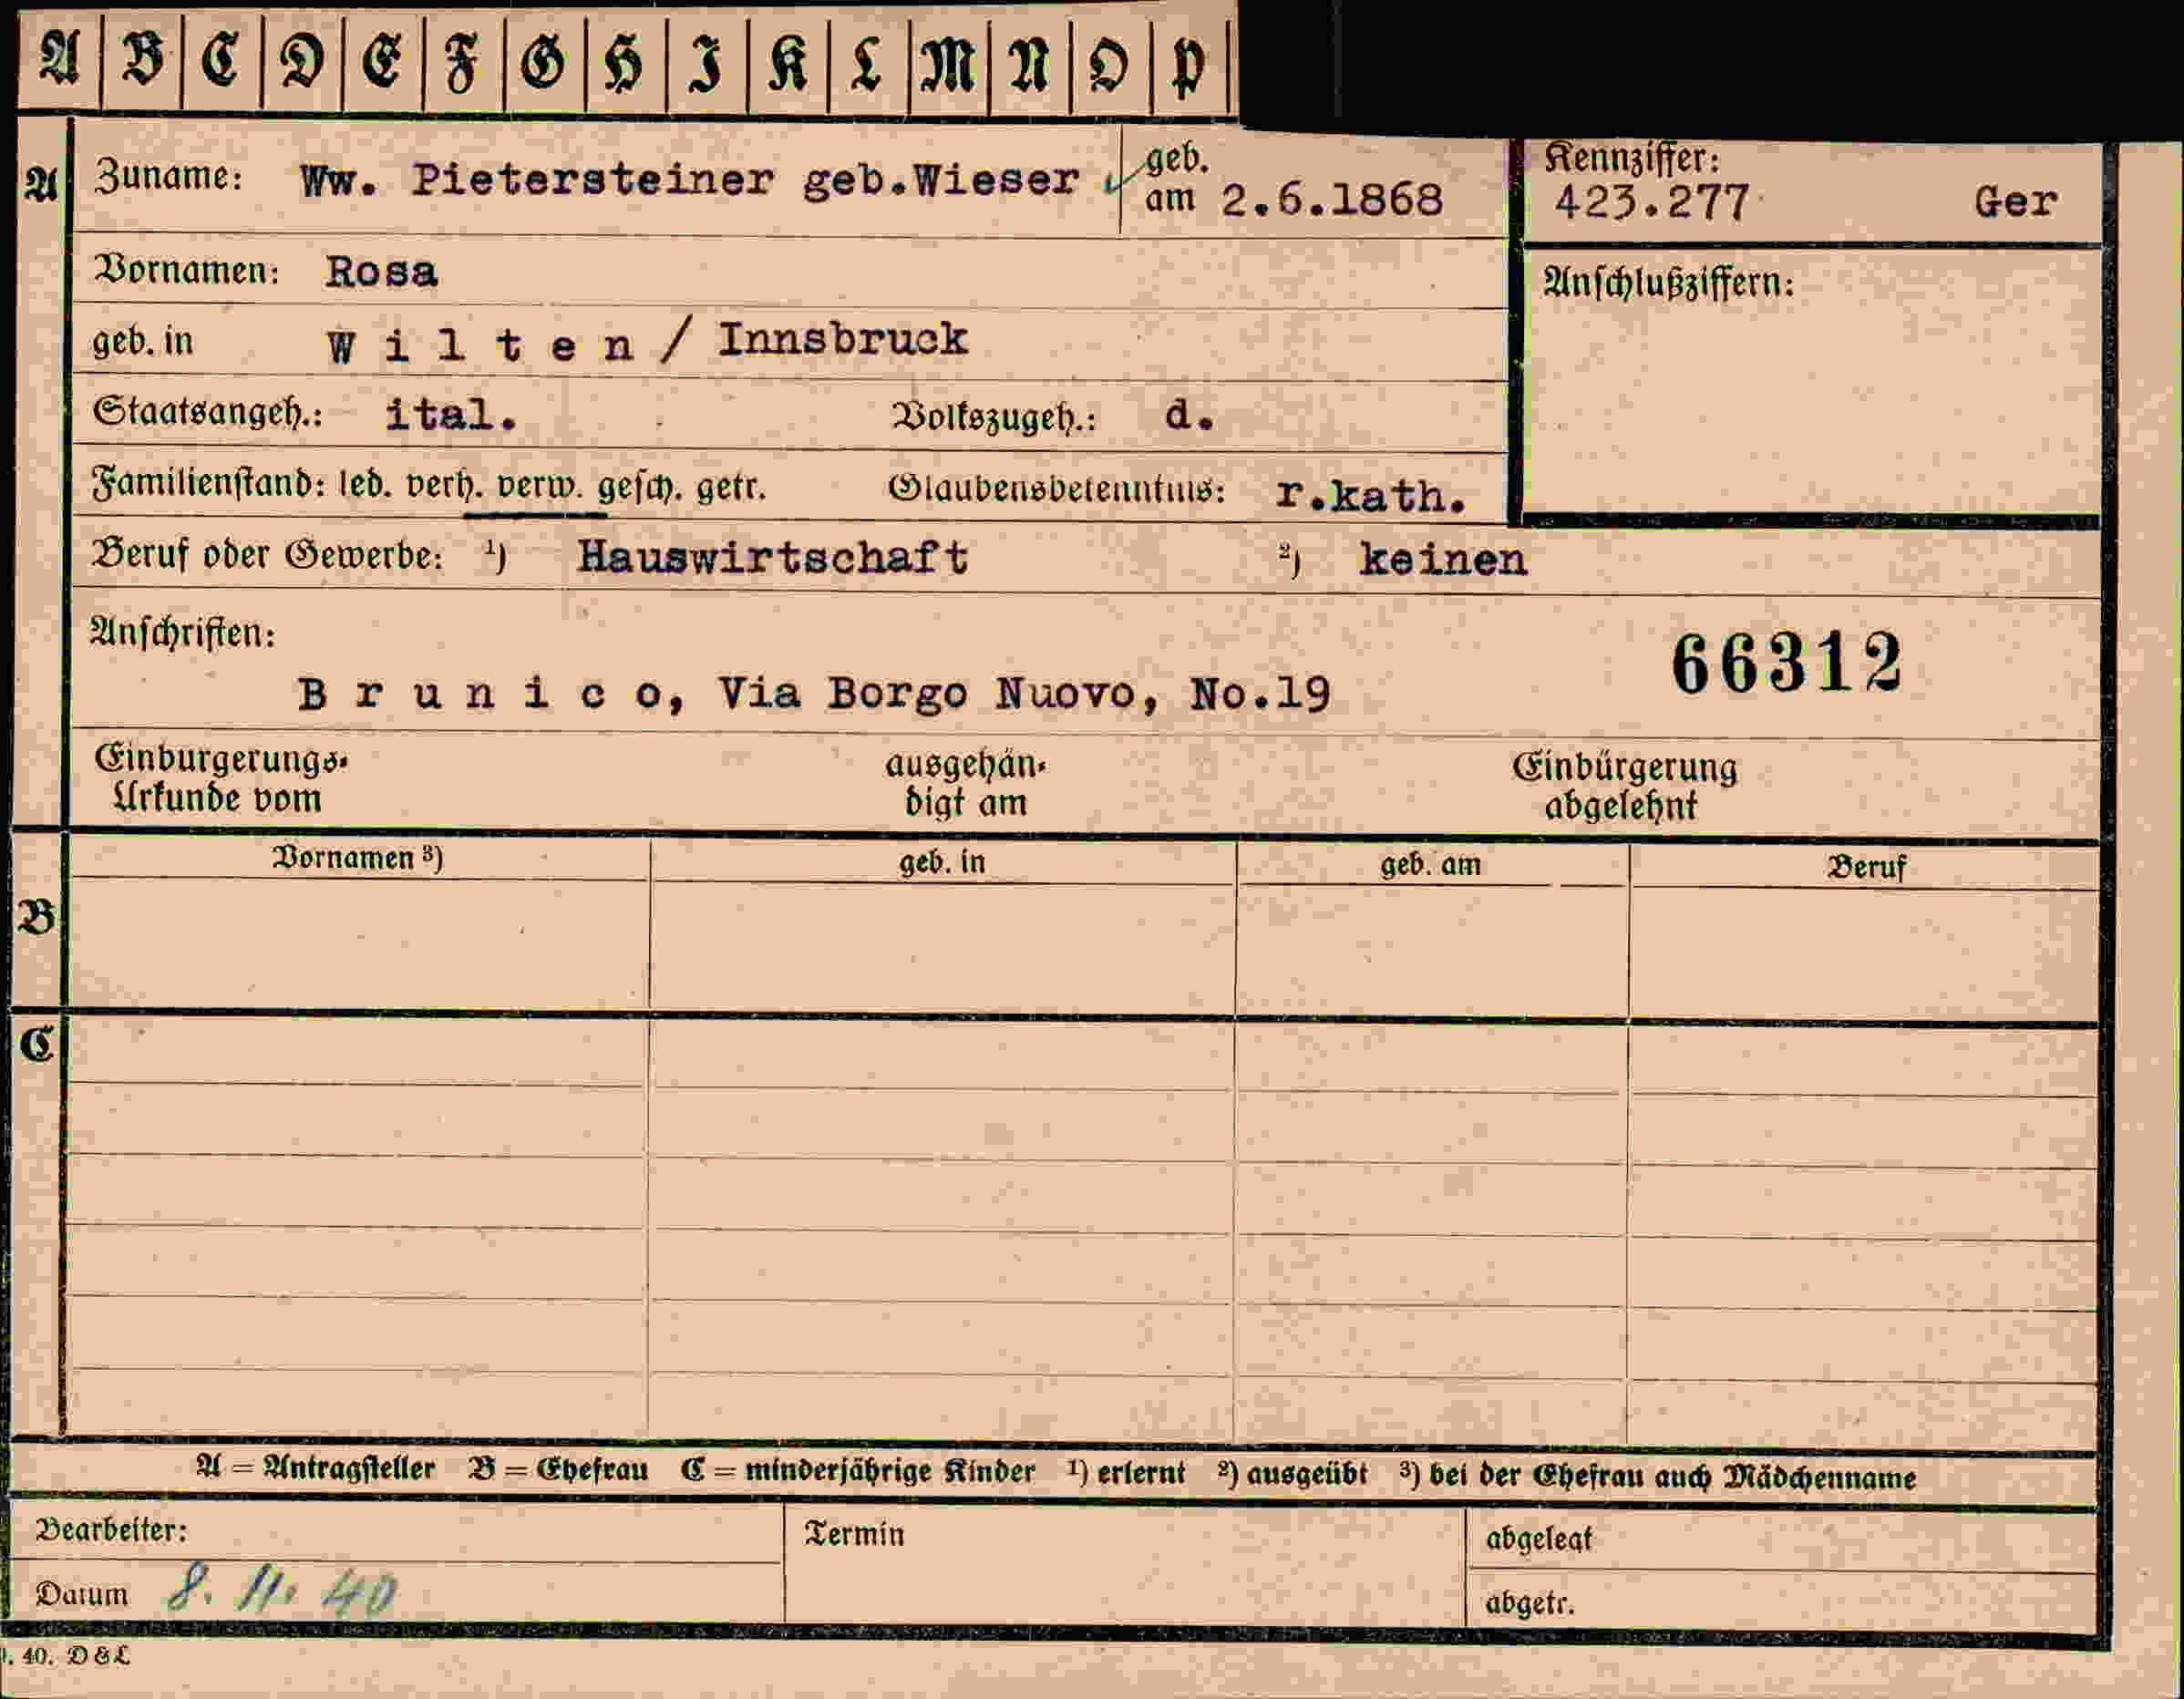 A B C D E F G H I K L M N O P
A Zuname: Ww. Pietersteiner geb.Wieser geb. am 2.6.1868
Kennziffer: 423.277 Ger
Vornamen: Rosa
Anschlußziffern:
geb. in W i l t e n / Innsbruck
Staatsangeh.: ital. Volkszugeh.: d.
Familienstand: led. verh. verw. gesch. getr. Glaubensbekenntnis: r.kath.
Beruf oder Gewerbe: ¹) Hauswirtschaft ²) keinen
Anschriften:
66312
B r u n i c o, Via Borgo Nuovo, No.19
Einbürgerungs- ausgehän- Einbürgerung
Urkunde vom digt am abgelehnt
Vornamen ³) geb. in geb. am Beruf
B
C
A = Antragsteller B = Ehefrau C = minderjährige Kinder ¹) erlernt ²) ausgeübt ³) bei der Ehefrau auch Mädchenname
Bearbeiter: Termin abgelegt
Datum 8. 11. 40 abgetr.
. 40. D & L